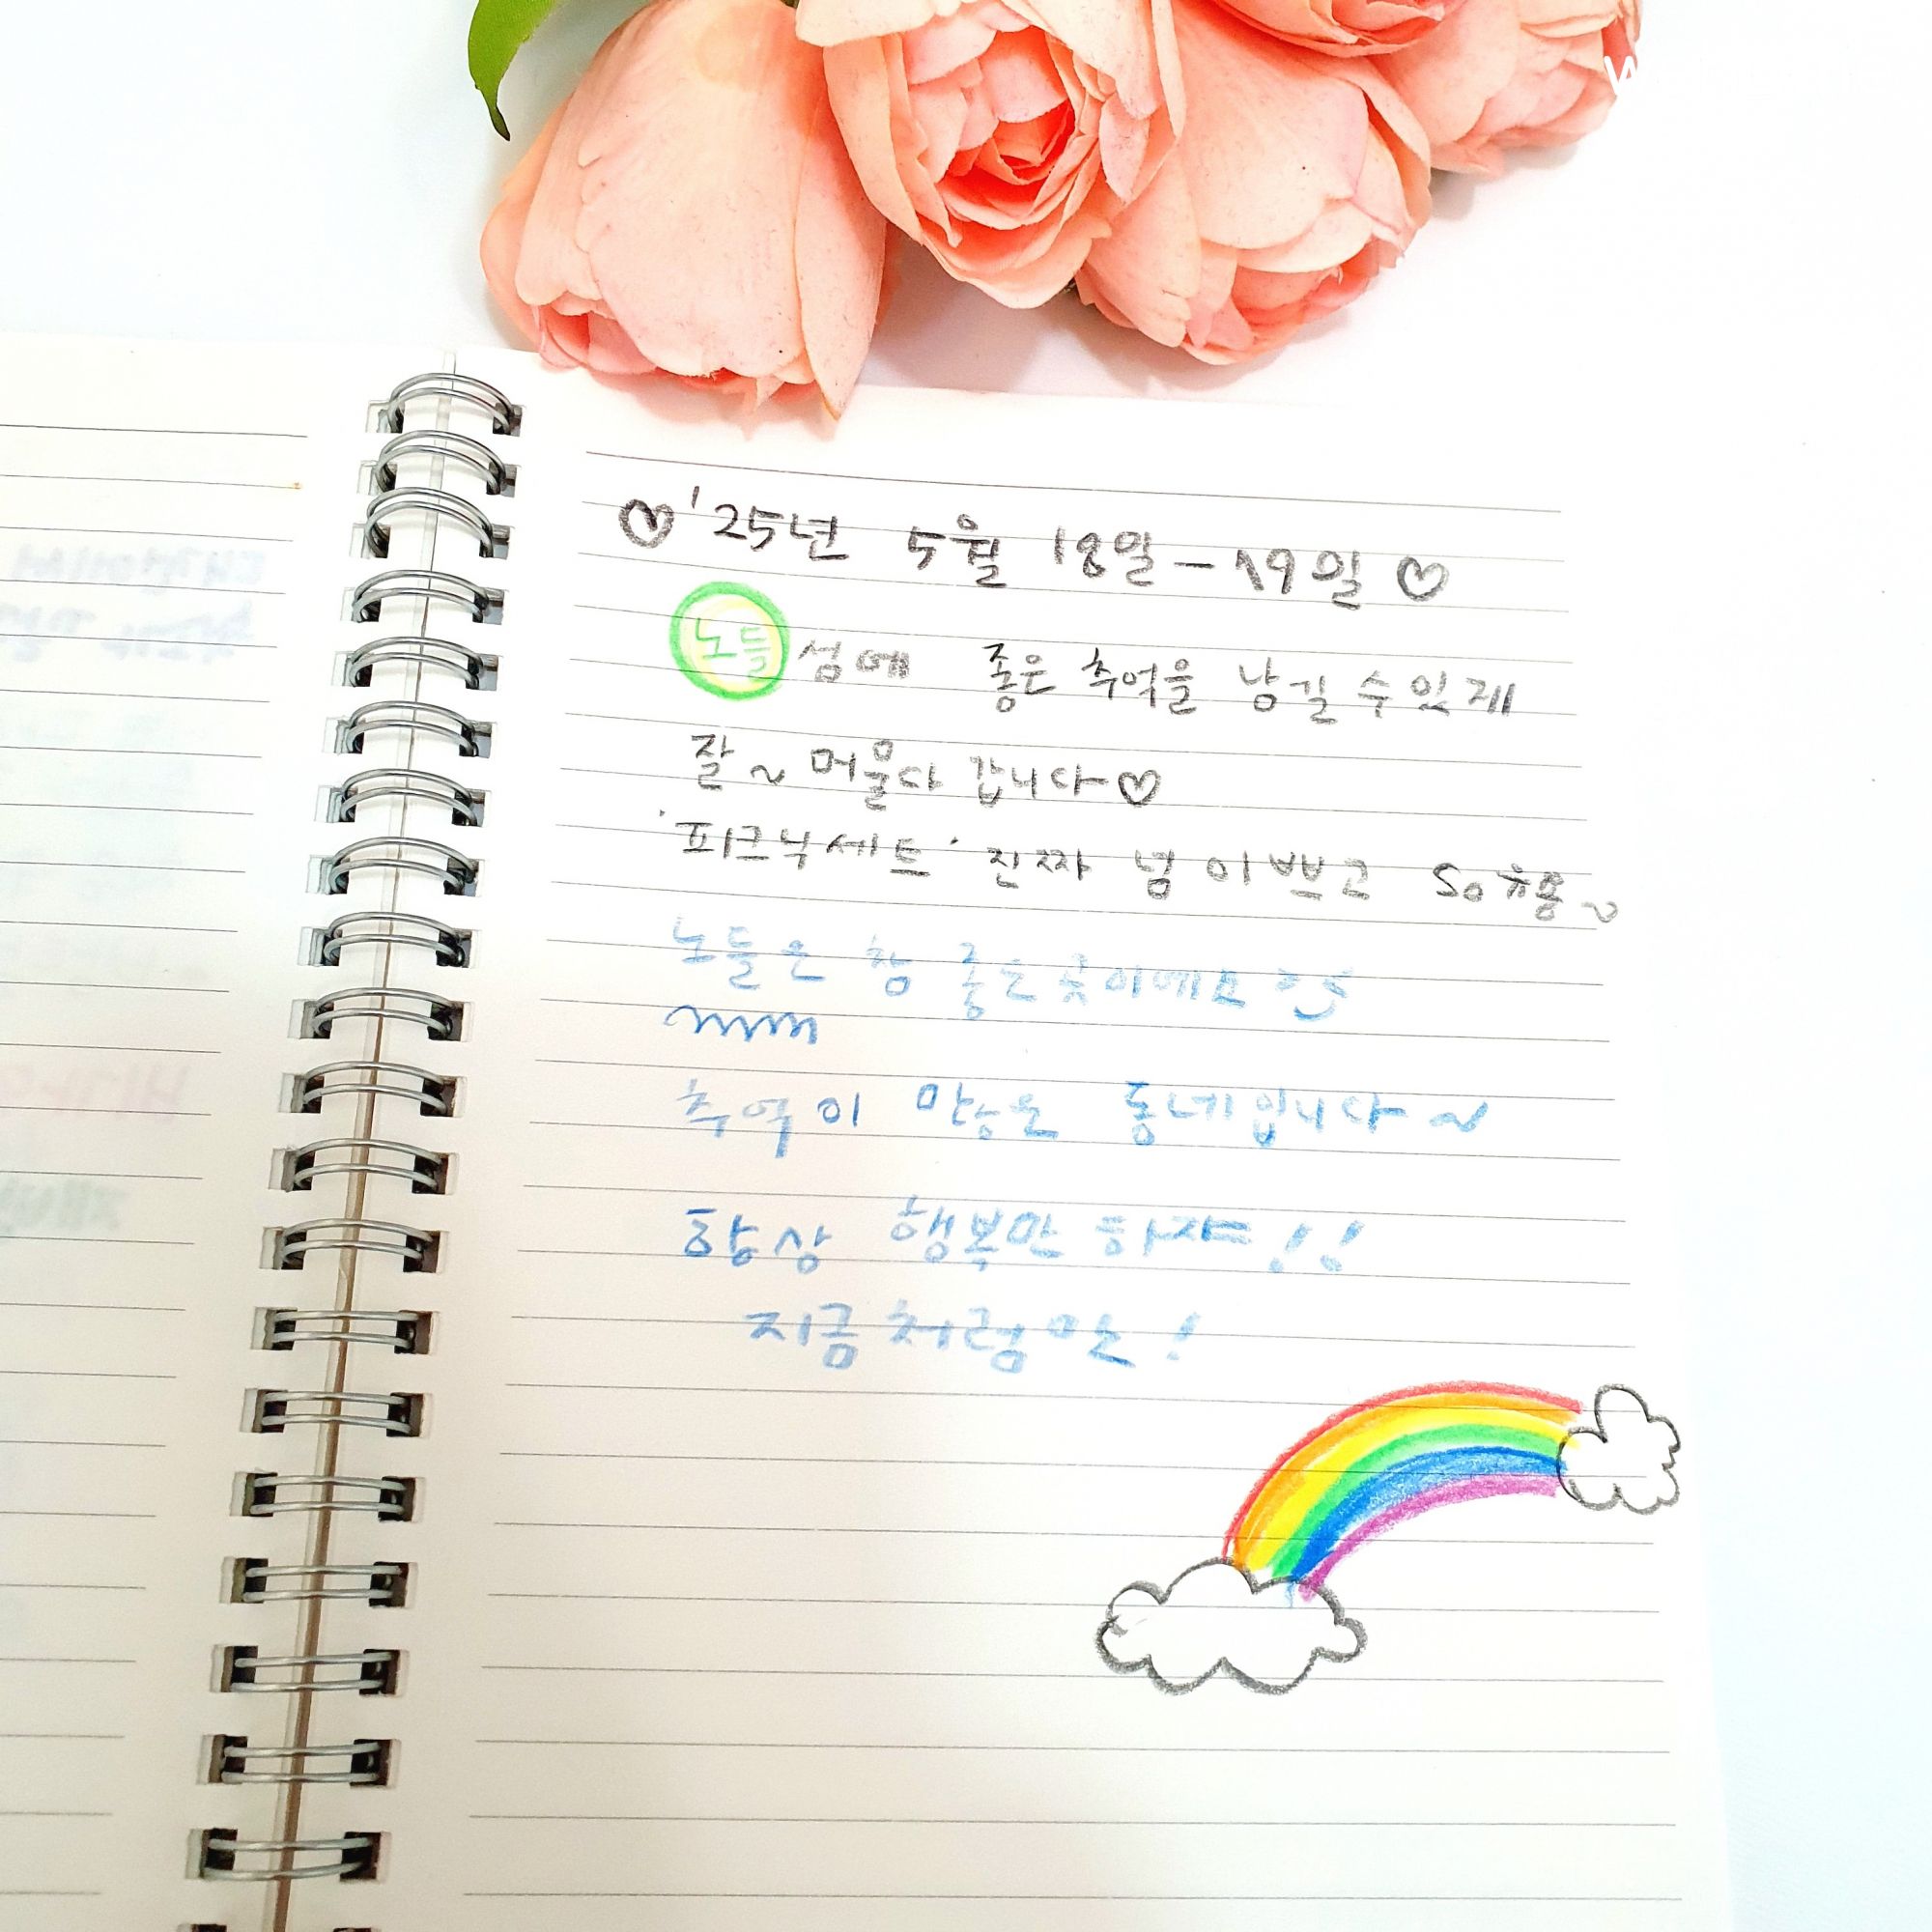 ♡'25년 5월 18일-19일♡
노들섬에 좋은 추억을 남길 수 있게
잘~ 머물다 갑니다♡
'피크닉세트' 진짜 넘 이쁘고 so
노들은 참 좋은곳이에요
추억이 많은 동네입니다~
항상 행복만 하자!!
지금처럼만!